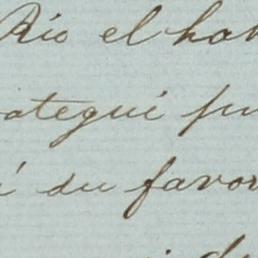 Rio el hab
ategui fu
i du favor